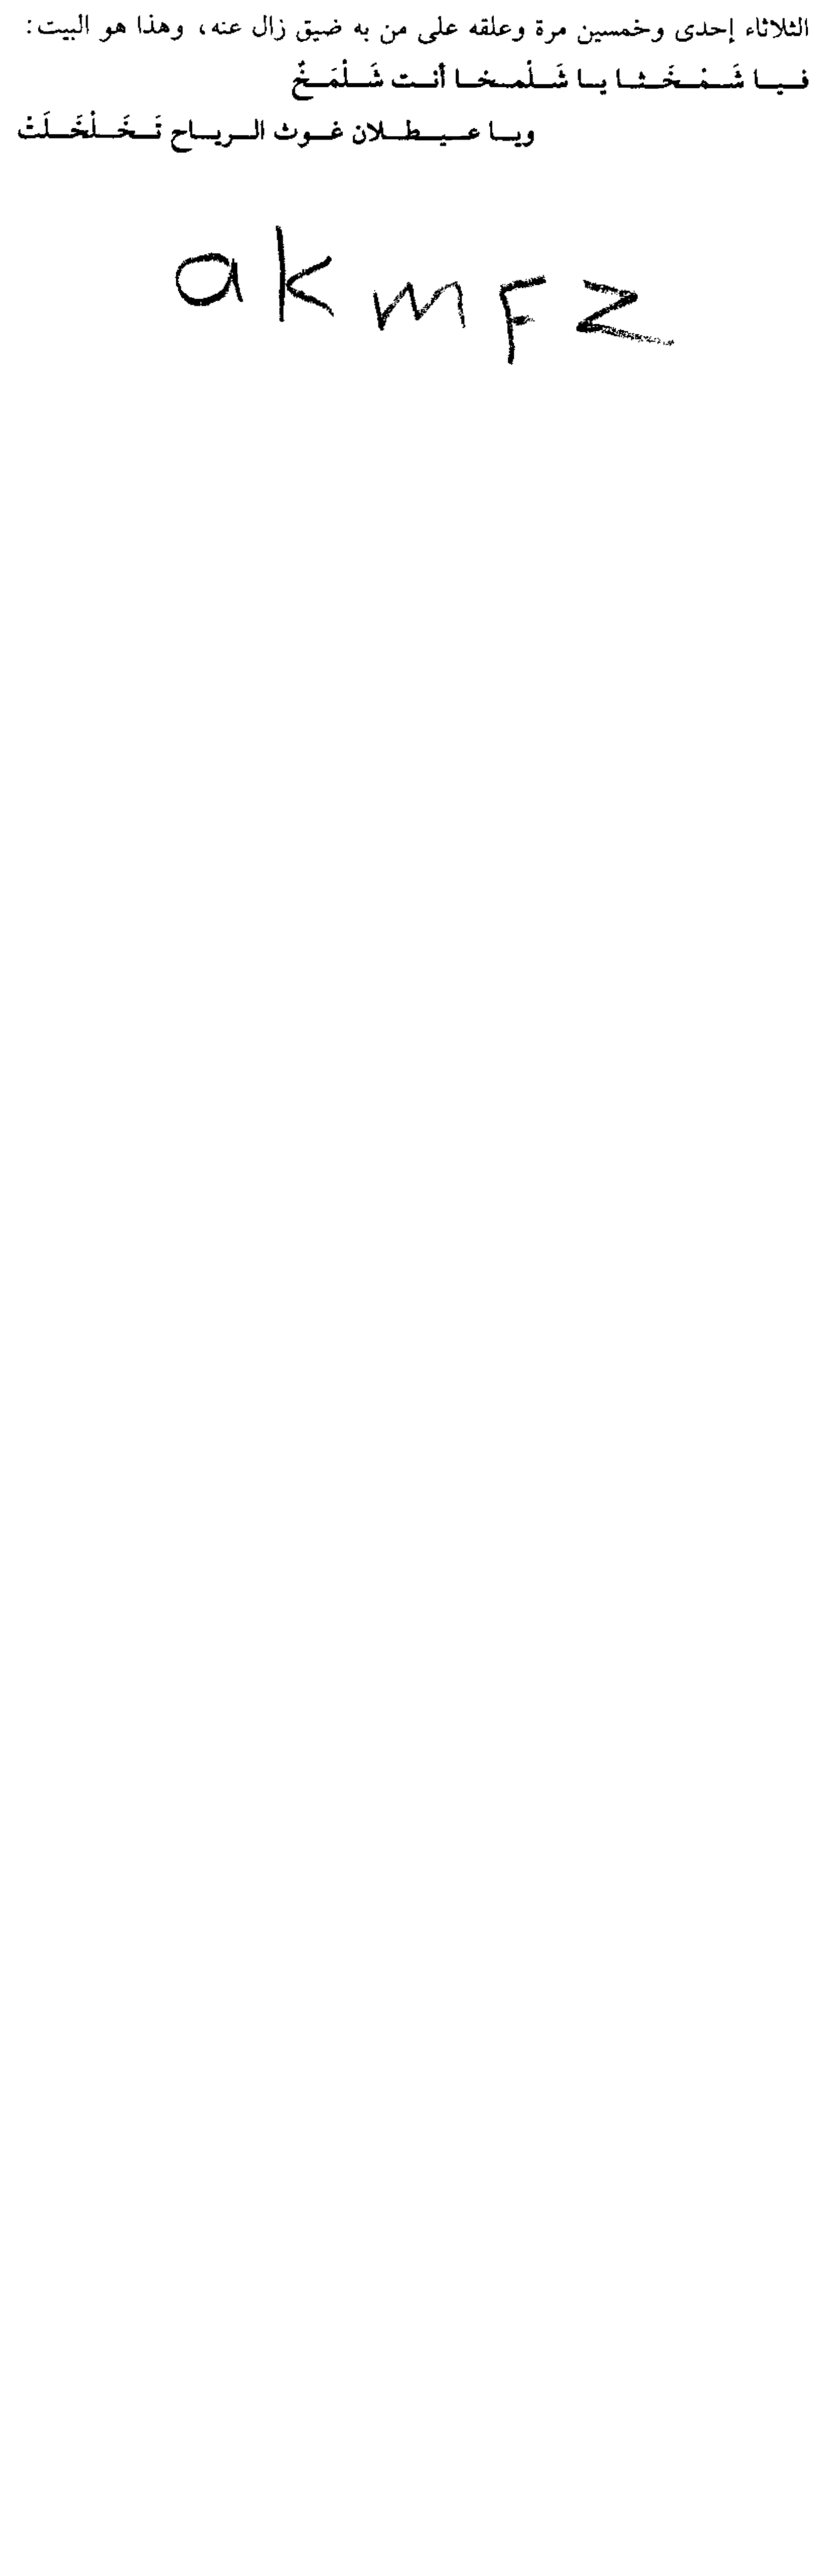 الثلاثاء إحدى وخمسين مرة وعلقه على من به ضيق زال عنه، وهذا هو البيت:
فيا شَمْخَثا يا شَلْمخا أنت شَلْمَخٌ
ويا عيطلان غوث الرياح تَخَلْخَلَتْ
akmFz